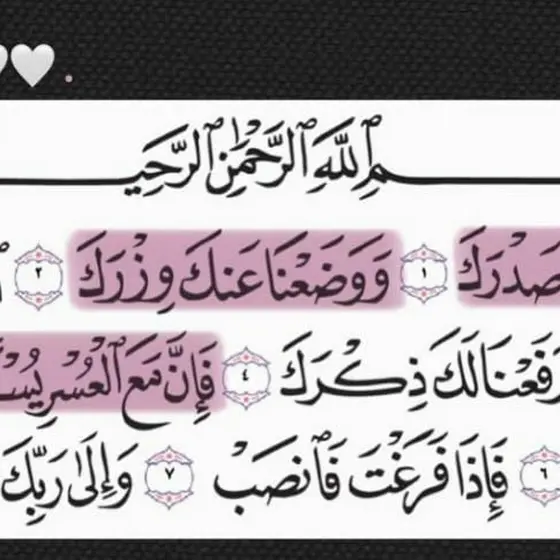 بِسْمِ ٱللَّهِ ٱلرَّحْمَٰنِ ٱلرَّحِيمِ
صَدْرَكَ ١ وَوَضَعْنَا عَنكَ وِزْرَكَ ٢
وَرَفَعْنَا لَكَ ذِكْرَكَ ٤ فَإِنَّ مَعَ ٱلْعُسْرِ يُسْ
٦ فَإِذَا فَرَغْتَ فَٱنصَبْ ٧ وَإِلَىٰ رَبِّكَ